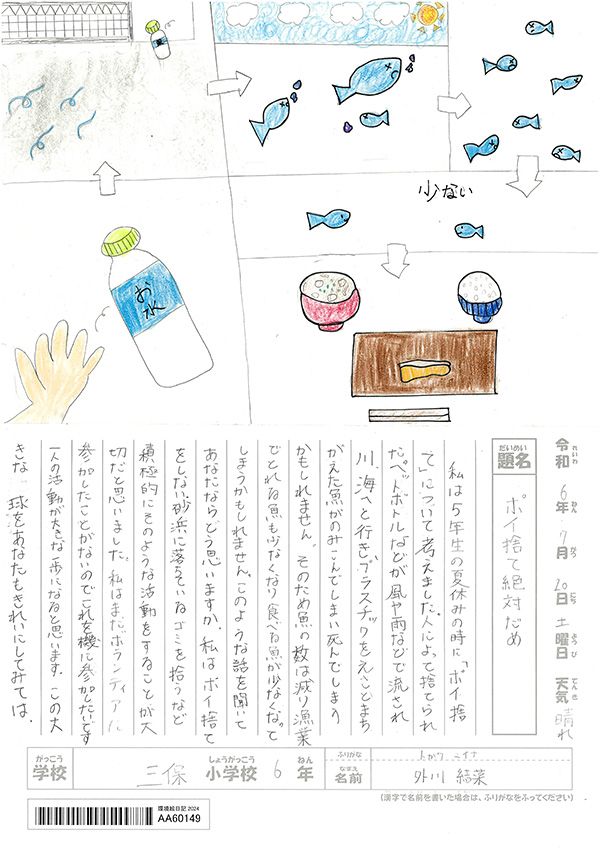 お水
少ない
令和6年7月20日土曜日 天気 晴れ
れいわ ねん がつ にち ようび てんき
だいめい
題名
ポイ捨て絶対だめ
私は5年生の夏休みの時に「ポイ捨
て」について考えました。人によって捨てられ
た。ペットボトルなどが風や雨などで流され
川、海へと行き、プラスチックをえことまち
がえた魚がのみこんでしまい死んでしまう
かもしれません。そのため魚の数は減り漁業
でとれる魚も少なくなり食べる魚が少なくなって
しまうかもしれません。このような話を聞いて
あなたならどう思いますか。私はポイ捨て
をしない、砂浜に落ちているゴミを拾うなど
積極的にそのような活動をすることが大
切だと思いました。私はまだボランティアに
参加したことがないのでこれを機に参加したいです
一人の活動が大きな一歩になると思います。この大
きな 球をあなたもきれいにしてみては。
がっこう しょうがっこう ねん
学校 三保 小学校 6 年
ふりがな
なまえ
名前 外川 結菜
(漢字で名前を書いた場合は、ふりがなをふってください)
環境絵日記 2024
AA60149